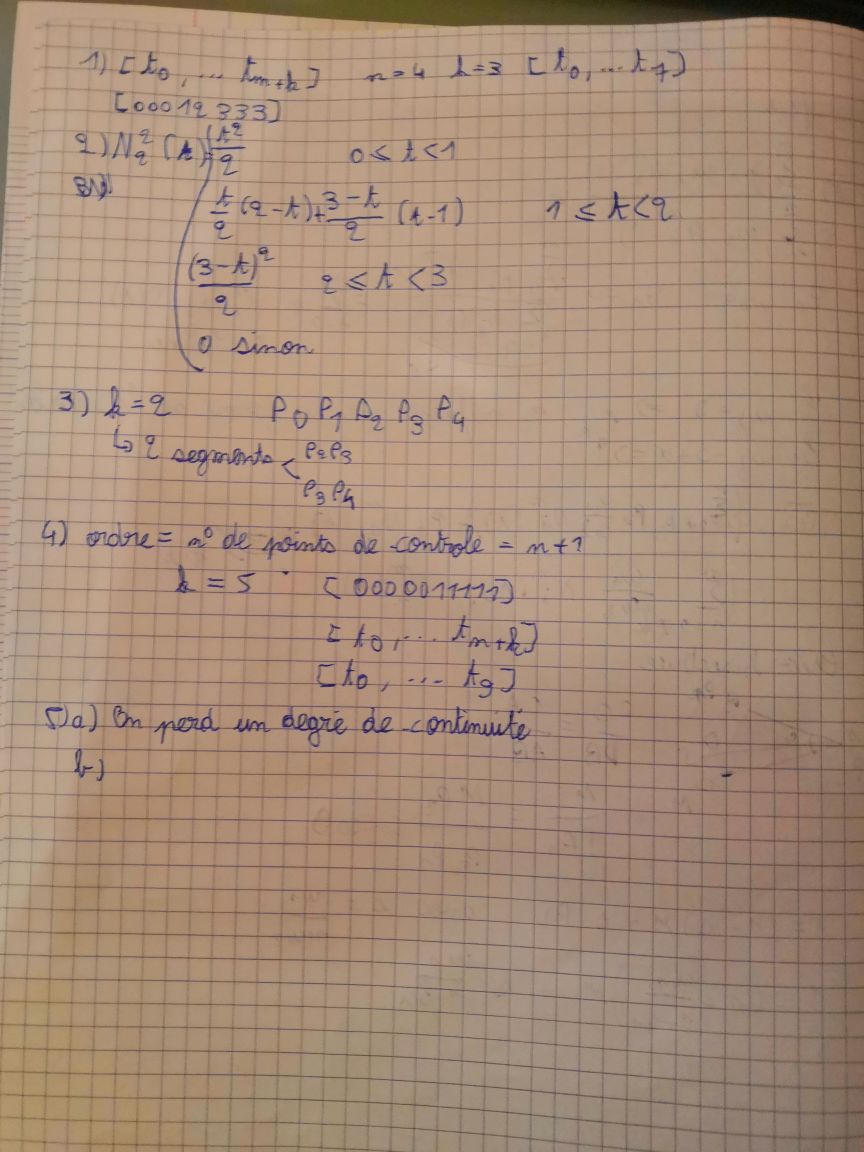 1) [t0, ... tm+k] n=4 k=3 [t0, ... t7]
[00012333]
2) N_2^2 (t) t^2/2 0 ≤ t < 1
t/2 (2-t) + (3-t)/2 (t-1) 1 ≤ t < 2
(3-t)^2/2 2 ≤ t < 3
0 sinon
3) k = 2 P0 P1 P2 P3 P4
↳ 2 segments < P2P3
P3P4
4) ordre = n° de points de controle = n+1
k = 5 [0000011111]
[t0, ... tn+k]
[t0, ... t9]
5)a) On perd un degré de continuité
b)